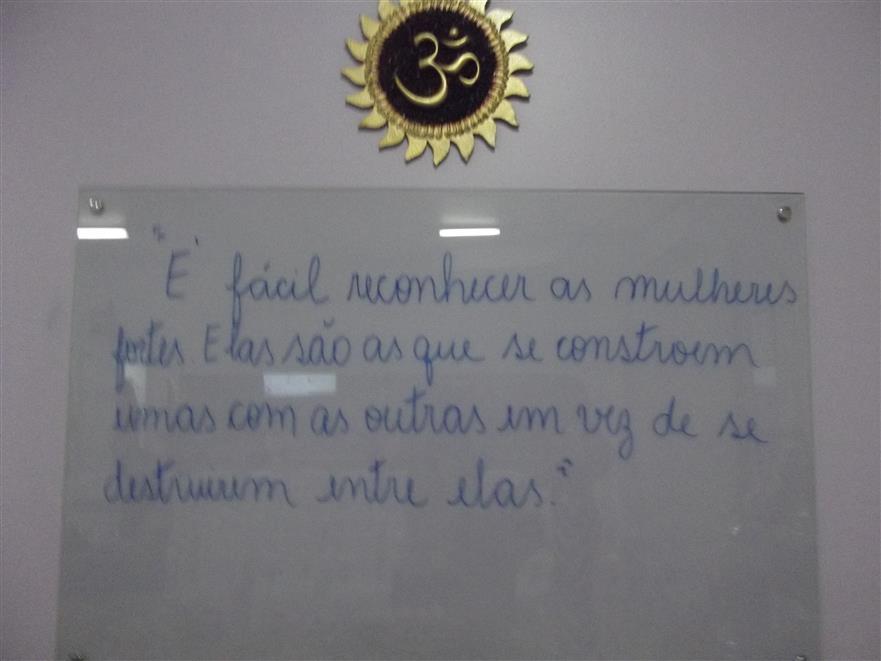 ॐ
"É fácil reconhecer as mulheres
fortes. Elas são as que se constroem
umas com as outras em vez de se
destruirem entre elas."